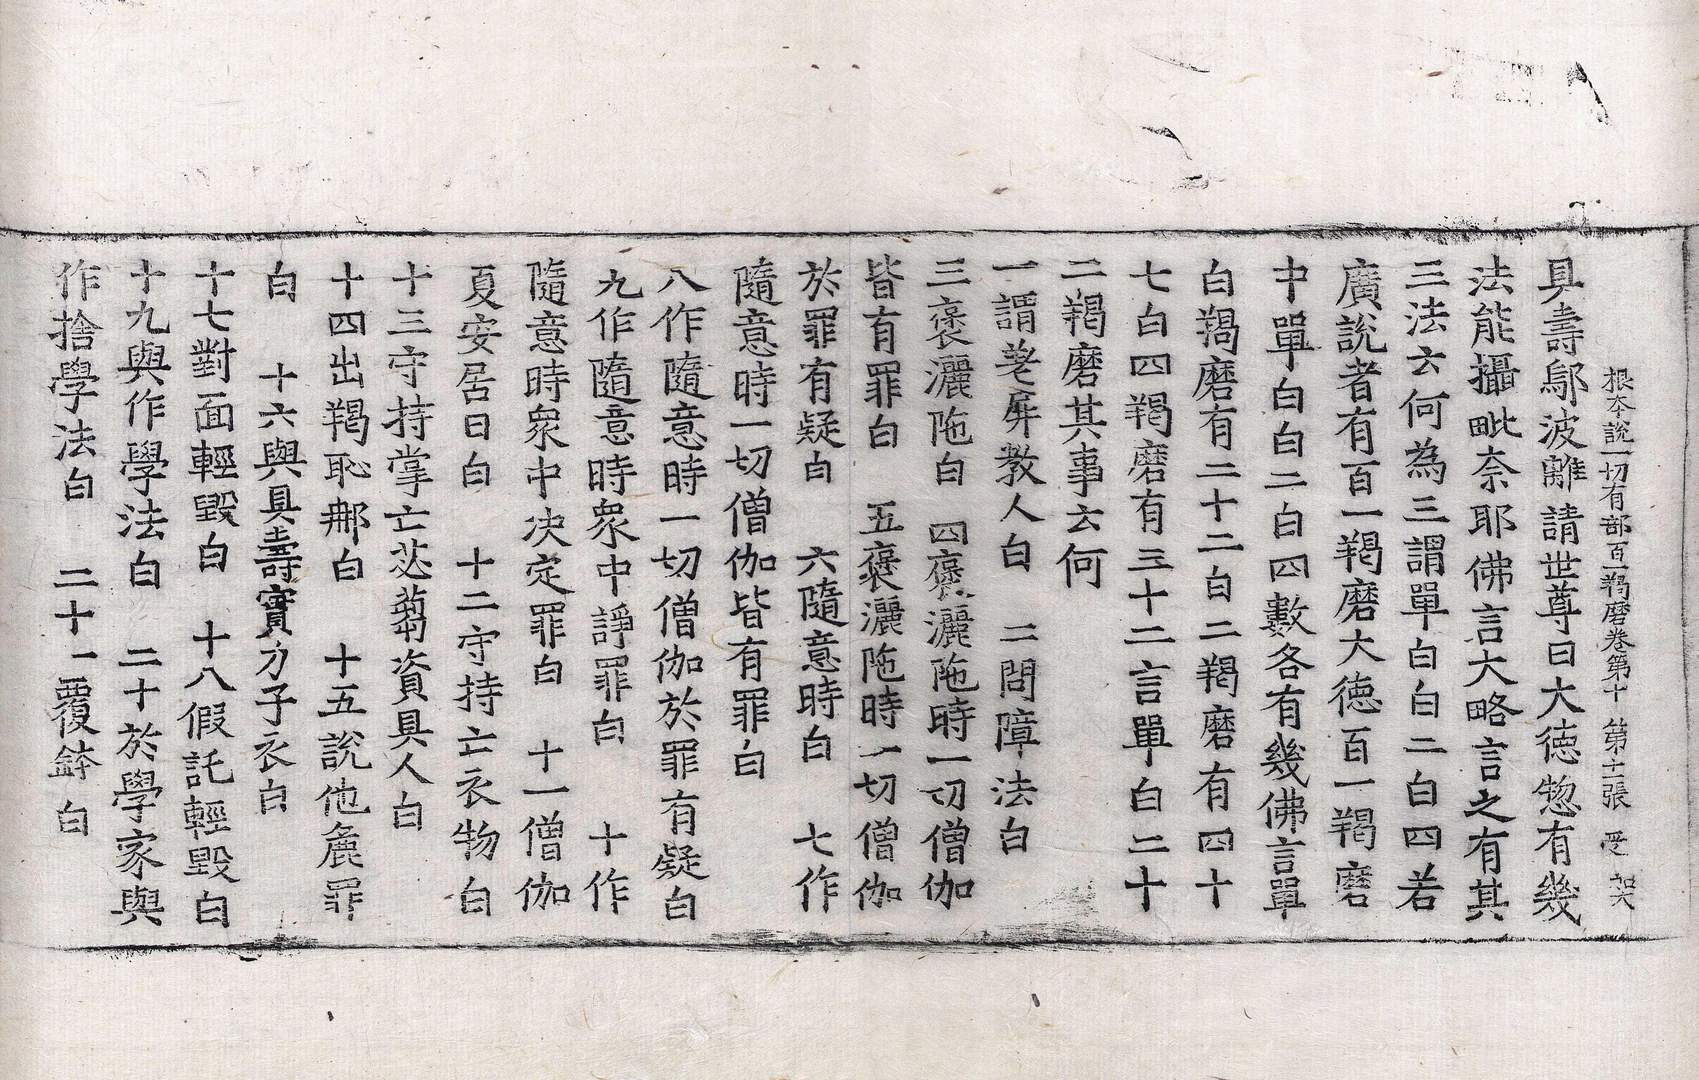 根本說一切有部百一羯磨卷第十 第十二張 受
具壽鄔波離請世尊曰大徳惣有幾
法能攝毗奈耶佛言大略言之有其
三法云何為三謂單白白二白四若
廣說者有百一羯磨大徳百一羯磨
中單白白二白四數各有幾佛言單
白羯磨有二十二白二羯磨有四十
七白四羯磨有三十二言單白二十
二羯磨其事云何
一謂差屏教人白 二問障法白
三褒灑陁白 四褒灑陁時一切僧伽
皆有罪白 五褒灑陁時一切僧伽
於罪有疑白 六隨意時白 七作
隨意時一切僧伽皆有罪白
八作隨意時一切僧伽於罪有疑白
九作隨意時衆中諍罪白 十作
隨意時衆中決定罪白 十一僧伽
夏安居日白 十二守持亡衣物白
十三守持掌亡苾蒭資具人白
十四出羯恥那白 十五說他麁罪
白 十六與具壽實力子衣白
十七對面輕毀白 十八假託輕毀白
十九與作學法白 二十於學家與
作捨學法白 二十一覆鉢白